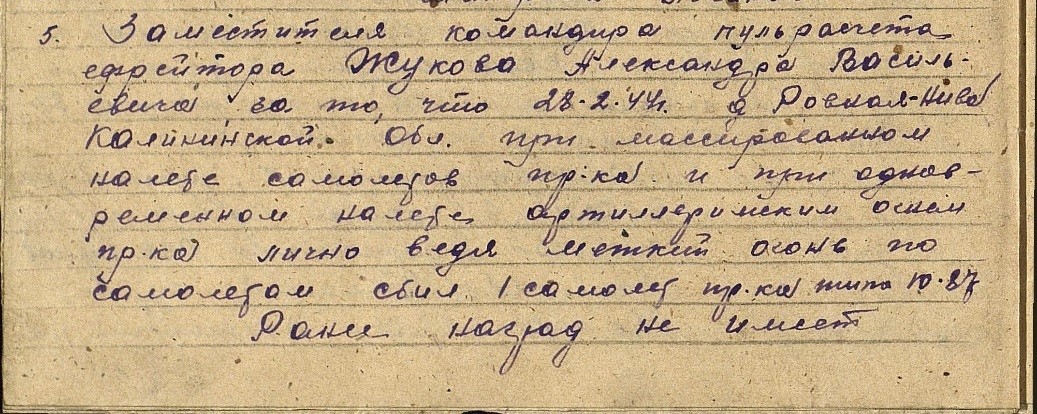 5. Заместителя командира пульрасчета
ефрейтора Жукова Александра Василь-
евича за то, что 28.2.44г. д Ровная-Нива
Калининской Обл. при массированном
налете самолетов пр-ка и при однов-
ременном налете артиллерийским огнем
пр-ка лично ведя меткий огонь по
самолетам сбил 1 самолет пр-ка типа Ю-87
Ранее наград не имеет